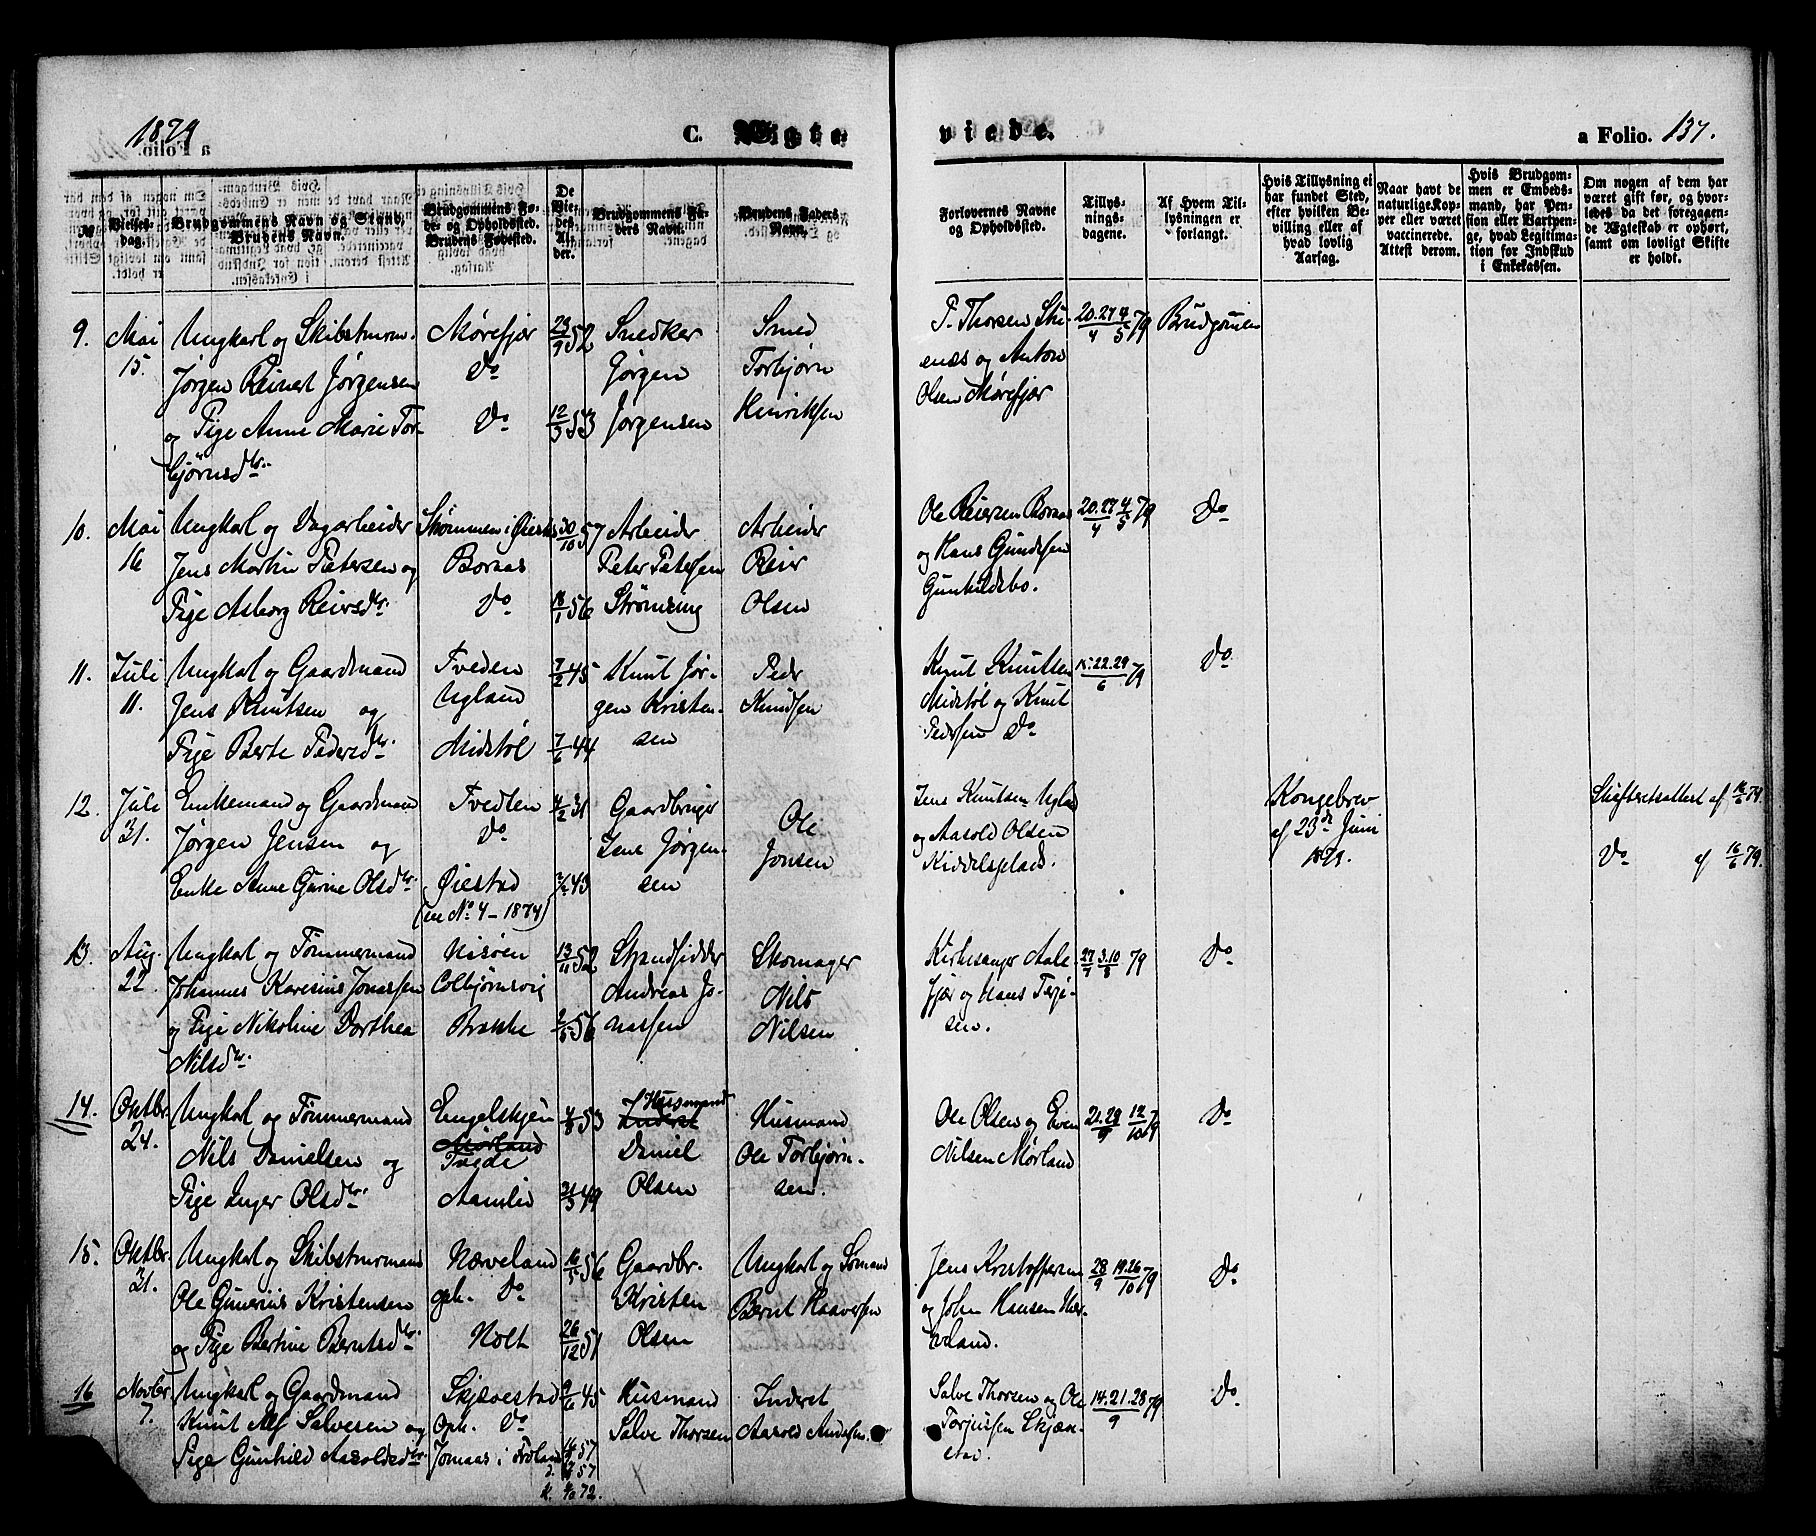 1879
C. Vigte
№
Vielses-
dag.
Brudgommens Navn og Stand,
Brudens Navn.
Brudgommens Fø-
de- og Opholdssted.
Brudens Fødested.
De
Vie-
des
Al-
der.
Brudgommens Fa-
ders Navn.
Brudens Faders
Navn.
9.
Mai
15.
Ungkarl og Skibstmrm.
Jørgen Reinert Jørgensen
og Pige Anne Marie Tor-
bjørnsdtr.
Mørefjær
Do
Do
29/9 52
12/3 53
Snedker
Jørgen
Jørgensen
Smed
Torbjørn
Henriksen
10.
Mai
16
Ungkarl og Dagarbeider
Jens Martin Petersen og
Pige Asborg Reiersdtr.
Strømmen i Øiest.
Boraas
Do
30/10 57
18/1 56
Arbeider
Peter Petersen
Strømeing
Arbeider
Reier
Olsen
11.
Juli
11.
Ungkarl og Gaardmand
Jens Knutsen og
Pige Berte Pedersdtr.
Tveden
Ugland
Midtøl
7/2 45
7/6 44
Knut Jør-
gen Kristen-
sen
Peder
Knudsen
12.
Juli
31.
Enkemand og Gaardmand
Jørgen Jensen og
Enke Anne Gurine Olsdtr.
Tvedten
Do
Øiestad
(se No 4 - 1874)
4/2 31
43
Gaardbruger
Jens Jørgen-
sen
Ole
Jonsen
13.
Aug.
22.
Ungkarl og Tømmermand
Johannes Karesius Jonassen
og Pige Nikoline Dorthea
Nilsdtr.
Nisøen
Colbjørnsvig
Brække
13/11 52
2/5 56
Strandsidder
Andreas Jo-
nassen
Skomager
Nils
Nilsen
14.
Oktbr.
24.
Ungkarl og Tømmermand
Nils Danielsen og
Pige Inger Olsdtr.
Engelskjøn
Mørland
Tvede
Aamlid
4/8 53
21/3 49
Husmand
Inderst
Daniel
Olsen
Husmand
Ole Torbjørn-
sen.
15.
Oktbr.
31.
Ungkarl og Skibstmrmand
Ole Gunerius Kristensen
og Pige Bertine Berntsdtr.
Næveland
oph. Do
Holt
16/5 56
26/12 51
Gaardbr.
Kristen
Olsen
Ungkarl og Sømand
Bernt Haaversen
16
Novbr.
7.
Ungkarl og Gaardmand
Knut Alf Salvesen og
Pige Gunhild Aasoldsdtr.
Skjævestad
Oph. Do
Jomaas i Froland
9/6 45
57
57
72.
Husmand
Salve Thorsen
Inderst
Aasold Andersen
viede.
a Folio. 137.
Forlovernes Navne
og Opholdssted.
Tillys-
nings-
dagene.
Af Hvem Til-
lysningen er
forlangt.
Hvis Tillysning ei
har fundet Sted,
efter hvilken Be-
villing eller af
hvad lovlig
Aarsag.
Naar havt de
naturlige Kop-
per eller været
vaccinerede.
Attest derom.
Hvis Brudgom-
men er Embeds-
mand, har Pen-
sion eller Vartpen-
ge, hvad Legitima-
tion for Indskud
i Enkekassen.
Om nogen af dem har
været gift før, og hvor-
ledes da det foregaaen-
de Ægteskab er ophørt,
samt om lovligt Skifte
er holdt.
P. Thorsen Stu-
enæs og Anton
Olsen Mørefjær
20.27/4 4/5 79
Brudgomen
Ole Reiersen Boraas
og Hans Gundersen
Gunhildsbo.
20.27/4 4/5 79
Do
Knut Knutsen
Midtøl og Knut
Pedersen Do
15.22.29/6 79
Do
Jens Knutsen Ugland
og Aasold Olsen
Kiddelsgeland.
Kongebrev
af 23de Juni
1879.
Skifteretsattest af 16/6 79.
Do af 16/6 79.
Kirkesanger Aale-
fjær og Hans Terje-
sen.
27/7 3.10/8 79
Do
Ole Olsen og Even
Nilsen Mørland
21.29/9 12/10 79
Do
Jens Kristoffersen
og John Hansen Næ-
veland.
28/9 19.26/10 79
Do
Salve Thorsen og Ole
Torjussen Skjæve-
stad.
14.21.28/9 79
Do